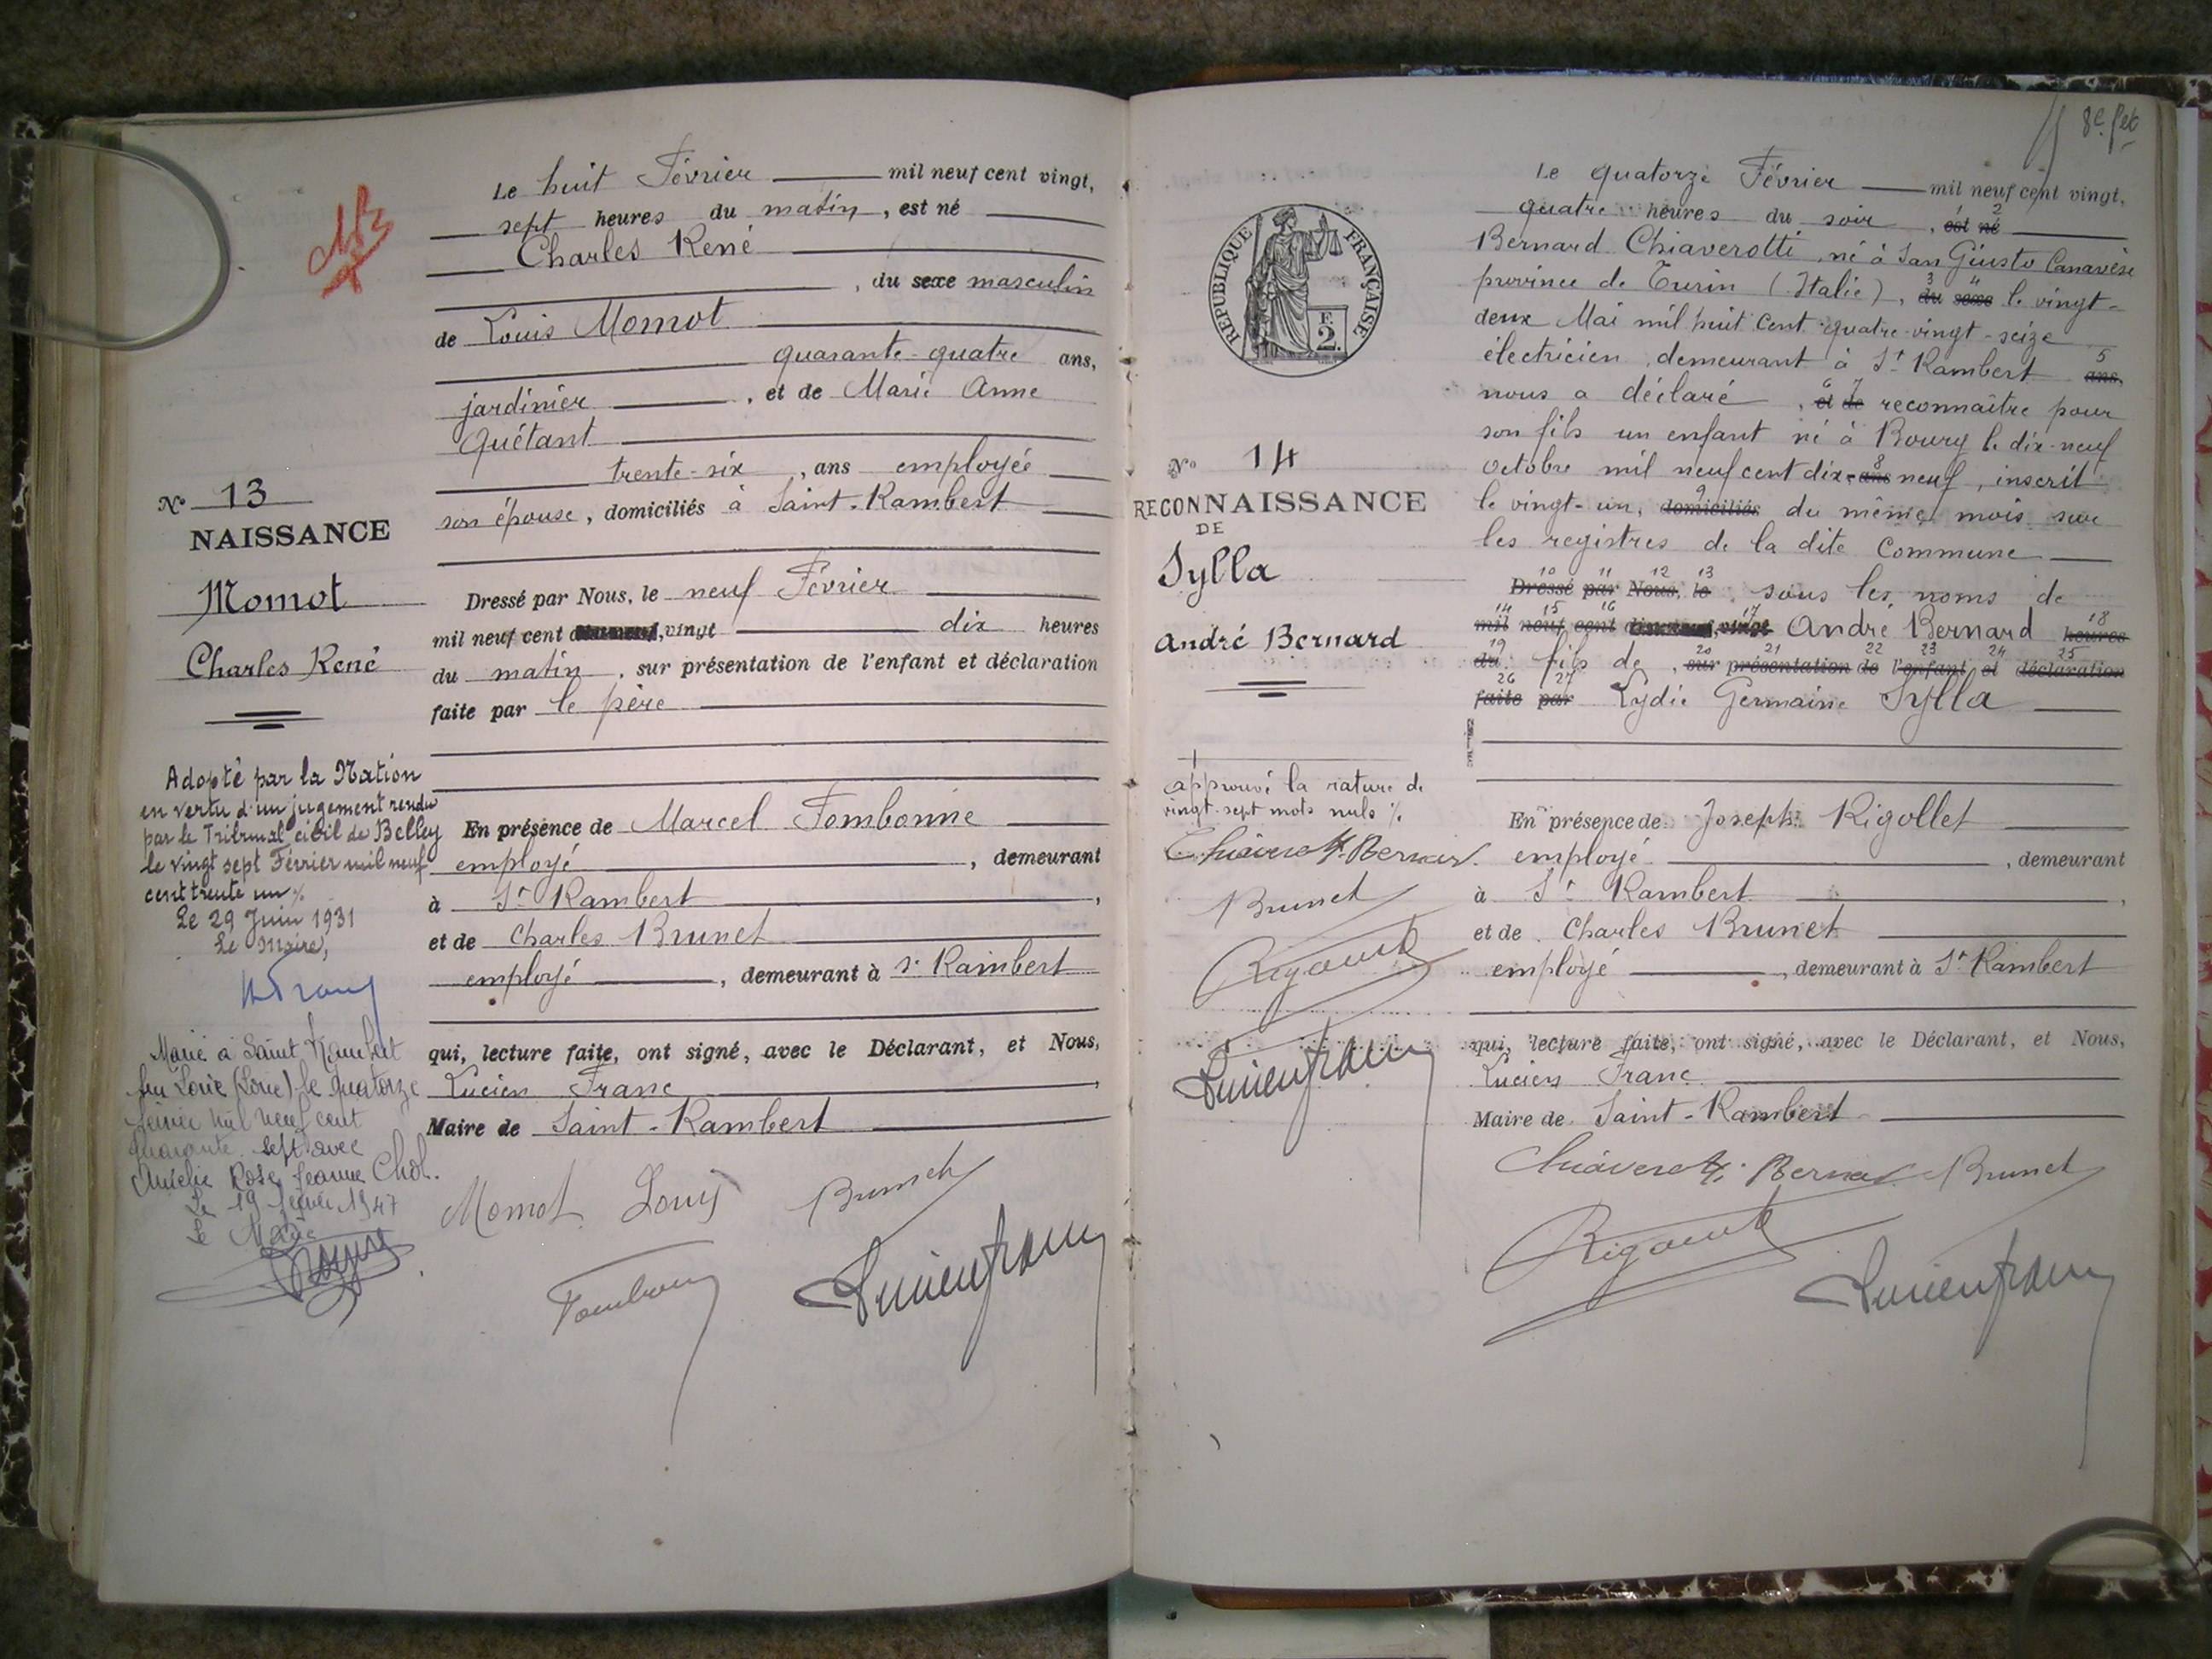 Le huit Février mil neuf cent vingt,
sept heures du matin, est né
Charles René
, du sexe masculin
de Louis Momot
quarante-quatre ans,
jardinier, et de Marie Anne
Quétant
trente-six, ans employée
son épouse, domiciliés à Saint-Rambert
Dressé par Nous, le neuf Février
mil neuf cent vingt dix heures
du matin, sur présentation de l'enfant et déclaration
faite par le père
En présence de Marcel Fombonne
employé, demeurant
à St Rambert,
et de Charles Brunet
employé, demeurant à St Rambert
qui, lecture faite, ont signé, avec le Déclarant, et Nous,
Lucien Franc
Maire de Saint-Rambert
Momot Louis Brunet
Lucien Franc
No 13
NAISSANCE
Momot
Charles René
Adopté par la Nation
en vertu d'un jugement rendu
par le Tribunal civil de Belley
le vingt sept Février mil neuf
cent trente un %
Le 29 Juin 1931
Le Maire,
Marié à Saint Rambert
(Loire) le quatorze
mil neuf cent
quarante sept avec
Aurélie Rose Jeanne Chol.
Le 19 1947
Le Maire
8e fet
REPUBLIQUE FRANÇAISE
F.
2.
No 14
RECONNAISSANCE
DE
Sylla
André Bernard
approuvé la rature de
vingt-sept mots nuls %
Chiaverotti Bernar
Brunet
Lucien Franc
Le quatorze Février mil neuf cent vingt,
1 2
quatre heures du soir, est né
Bernard Chiaverotti, né à San Giusto Canavèse
3 4
province de Turin (Italie), du sexe le vingt-
deux Mai mil huit cent quatre-vingt-seize
5
électricien, demeurant à St Rambert ans,
6 7
nous a déclaré, et de reconnaître pour
son fils un enfant né à Bourg le dix-neuf
8
Octobre mil neuf cent dix-ans neuf, inscrit
9
le vingt-un, domiciliés du même mois sur
les registres de la dite Commune
10 11 12 13
Dressé par Nous, le sous les noms de
14 15 16 17 18
mil neuf cent vingt André Bernard heures
19 20 21 22 23 24 25
du fils de, sur présentation de l'enfant et déclaration
26 27
faite par Lydie Germaine Sylla
En présence de Joseph Rigollet
employé, demeurant
à St Rambert,
et de Charles Brunet
employé, demeurant à St Rambert
qui, lecture faite, ont signé, avec le Déclarant, et Nous,
Lucien Franc
Maire de Saint-Rambert
Chiaverotti Bernar Brunet
Lucien Franc